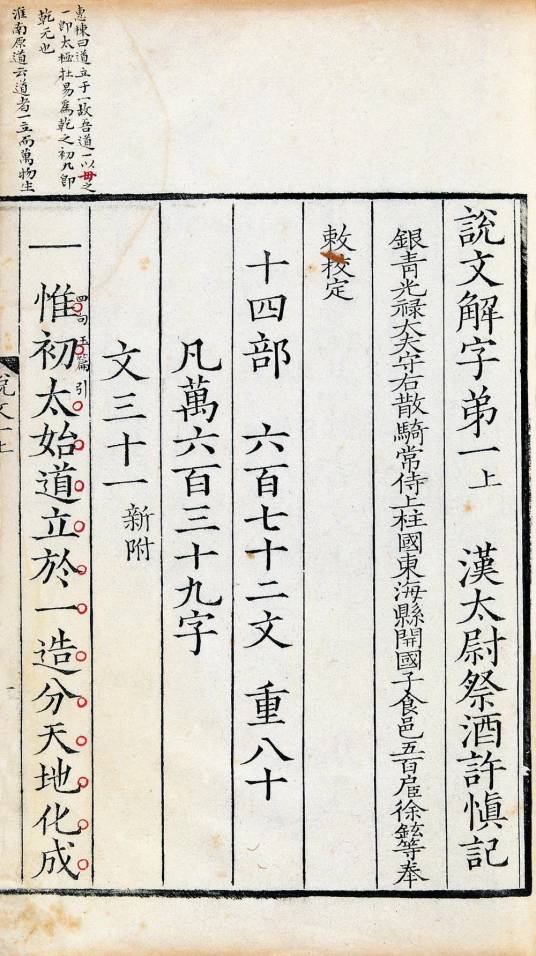 惠棟曰道立于一故吾道一以毌之
一即太極在易爲乾之初九即
乾元也
淮南原道云道者一立而萬物生
說文解字弟一上　漢太尉祭酒許愼記
銀青光祿大夫守右散騎常侍上柱國東海縣開國子食邑五百戶臣徐鉉等奉
敕校定
十四部　六百七十二文　重八十
凡萬六百三十九字
文三十一新附
四句玉篇引
一惟初太始道立於一造分天地化成
說文一上